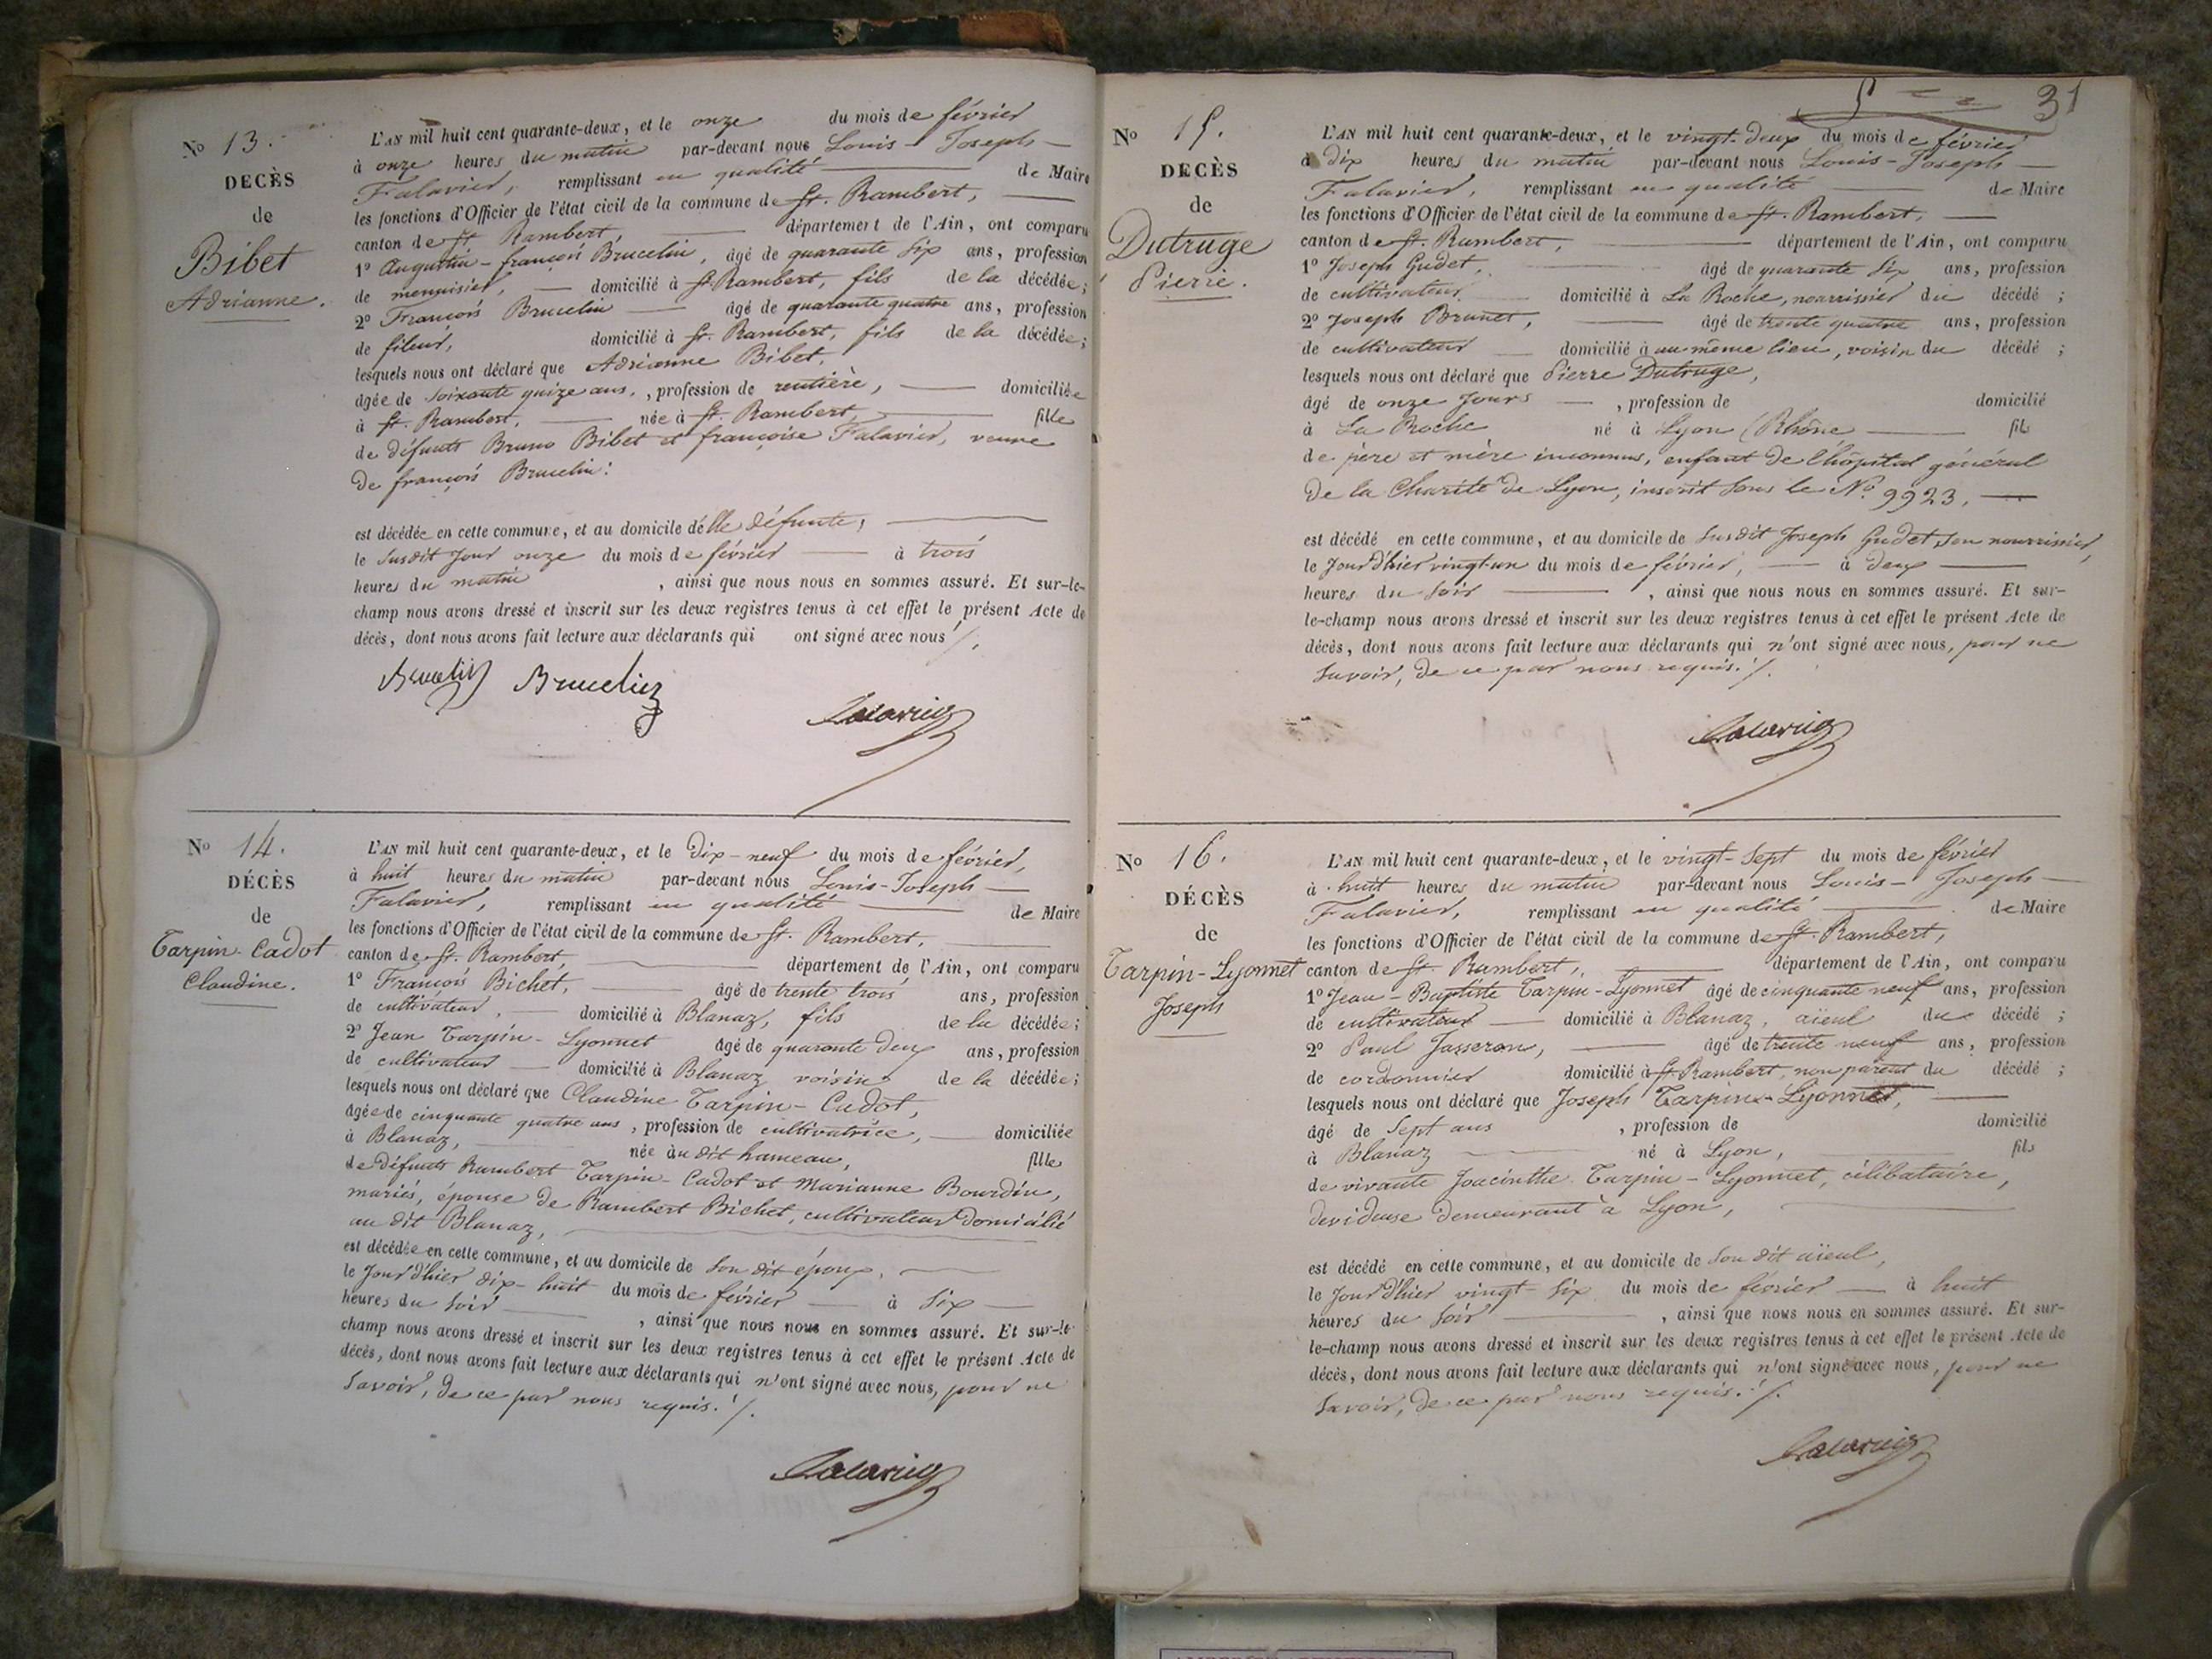 No 13.
DECÈS
de
Bibet
Adrianne.
L'AN mil huit cent quarante-deux, et le onze du mois de février
à onze heures du matin par-devant nous Louis-Joseph
Falavier, remplissant en qualité de Maire
les fonctions d'Officier de l'état civil de la commune de St. Rambert,
canton de St. Rambert, département de l'Ain, ont comparu
1º Augustin-françois Brucelin, âgé de quarante six ans, profession
de menuisier, domicilié à St. Rambert, fils de la décédée;
2º François Brucelin âgé de quarante quatre ans, profession
de fileur, domicilié à St. Rambert, fils de la décédée;
lesquels nous ont déclaré que Adrianne Bibet,
âgée de soixante quize ans, profession de rentière, domiciliée
à St. Rambert, née à St. Rambert, fille
de défunts Bruno Bibet et françoise Falavier, veuve
de françois Brucelin:
est décédée en cette commune, et au domicile de lle défunte,
le susdit jour onze du mois de février à trois
heures du matin, ainsi que nous nous en sommes assuré. Et sur-le-
champ nous avons dressé et inscrit sur les deux registres tenus à cet effet le présent Acte de
décès, dont nous avons fait lecture aux déclarants qui ont signé avec nous ./.
Brucelin Brucelin
Falavier
No 14.
DÉCÈS
de
Tarpin-Cadot
Claudine.
L'AN mil huit cent quarante-deux, et le dix-neuf du mois de février,
à huit heures du matin par-devant nous Louis-Joseph
Falavier, remplissant en qualité de Maire
les fonctions d'Officier de l'état civil de la commune de St. Rambert,
canton de St. Rambert, département de l'Ain, ont comparu
1º François Bichet, âgé de trente trois ans, profession
de cultivateur, domicilié à Blanaz, fils de la décédée;
2º Jean Tarpin-Lyonnet âgé de quarante deux ans, profession
de cultivateur domicilié à Blanaz voisin de la décédée;
lesquels nous ont déclaré que Claudine Tarpin-Cadot,
âgée de cinquante quatre ans, profession de cultivatrice, domiciliée
à Blanaz, née au dit hameau, fille
de défunts Rambert Tarpin-Cadot et Marianne Bourdin,
mariés, épouse de Rambert Bichet, cultivateur domicilié
au dit Blanaz,
est décédée en cette commune, et au domicile de son dit époux,
le jour d'hier dix-huit du mois de février à six
heures du soir, ainsi que nous nous en sommes assuré. Et sur-le-
champ nous avons dressé et inscrit sur les deux registres tenus à cet effet le présent Acte de
décès, dont nous avons fait lecture aux déclarants qui n'ont signé avec nous, pour ne
savoir, de ce par nous requis. ./.
Falavier
31
No 15.
DECÈS
de
Dutruge
Pierre.
L'AN mil huit cent quarante-deux, et le vingt-deux du mois de février
à dix heures du matin par-devant nous Louis-Joseph
Falavier, remplissant en qualité de Maire
les fonctions d'Officier de l'état civil de la commune de St. Rambert,
canton de St. Rambert, département de l'Ain, ont comparu
1º Joseph Gudet, âgé de quarante six ans, profession
de cultivateur domicilié à La Roche, nourrissier du décédé;
2º Joseph Brunet, âgé de trente quatre ans, profession
de cultivateur domicilié à au même lieu, voisin du décédé;
lesquels nous ont déclaré que Pierre Dutruge,
âgé de onze jours, profession de domicilié
à La Roche né à Lyon (Rhône fils
de père et mère inconnus, enfant de l'hôpital général
de la Charité de Lyon, inscrit sous le No. 9923,
est décédé en cette commune, et au domicile de susdit Joseph Gudet, son nourrissier,
le jour d'hier vingt-un du mois de février, à deux
heures du soir, ainsi que nous nous en sommes assuré. Et sur-
le-champ nous avons dressé et inscrit sur les deux registres tenus à cet effet le présent Acte de
décès, dont nous avons fait lecture aux déclarants qui n'ont signé avec nous, pour ne
savoir, de ce par nous requis. ./.
Falavier
No 16.
DÉCÈS
de
Tarpin-Lyonnet
Joseph
L'AN mil huit cent quarante-deux, et le vingt-sept du mois de février
à huit heures du matin par-devant nous Louis-Joseph
Falavier, remplissant en qualité de Maire
les fonctions d'Officier de l'état civil de la commune de St. Rambert,
canton de St. Rambert, département de l'Ain, ont comparu
1º Jean-Baptiste Tarpin-Lyonnet âgé de cinquante neuf ans, profession
de cultivateur domicilié à Blanaz, aïeul du décédé;
2º Paul Jasseron, âgé de trente neuf ans, profession
de cordonnier domicilié à St. Rambert, non parent du décédé;
lesquels nous ont déclaré que Joseph Tarpin-Lyonnet,
âgé de sept ans, profession de domicilié
à Blanaz né à Lyon, fils
de vivante Joacinthe Tarpin-Lyonnet, célibataire,
devideuse demeurant à Lyon,
est décédé en cette commune, et au domicile de son dit aïeul,
le jour d'hier vingt-six du mois de février à huit
heures du soir, ainsi que nous nous en sommes assuré. Et sur-
le-champ nous avons dressé et inscrit sur les deux registres tenus à cet effet le présent Acte de
décès, dont nous avons fait lecture aux déclarants qui n'ont signé avec nous, pour ne
savoir, de ce par nous requis. ./.
Falavier